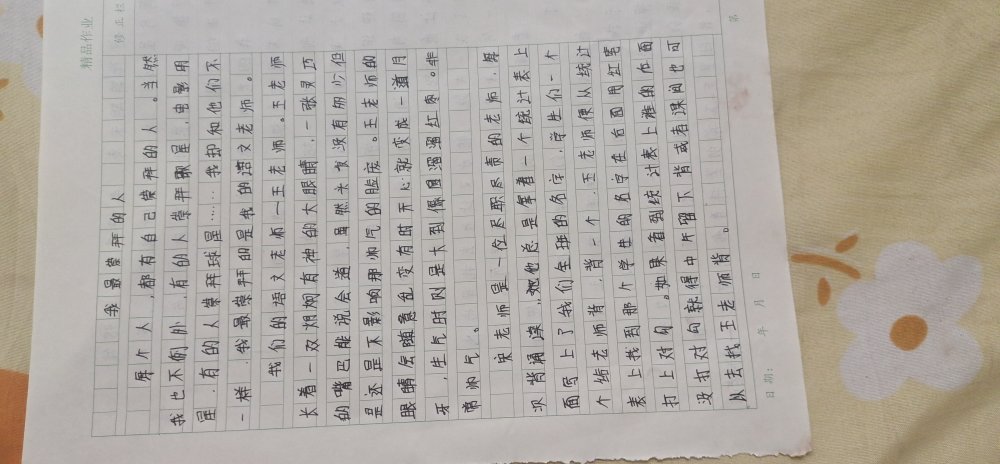 精品作业
修正栏
第
我最崇拜的人
每个人,都有自己崇拜的人。当然
我也不例外,有的人崇拜歌星,电影明
星,有的人崇拜球星……我却和他们不
一样,我最崇拜的是我的语文老师。
我们的语文老师—王老师。王老师
长着一双炯炯有神的大眼睛,一张灵巧
的嘴巴能说会道,虽然头发没有多少但
是还是不影响那帅气的脸庞。王老师的
眼睛会随意乱变有时开心就变成一道月
牙,生气时则是大到像圆溜溜红枣。非
常帅气。
王老师是一位尽职尽责的老师,每
次背诵课,他总是拿着一个统计表上
面写上了我们全班的名字,学生们一个
个给老师背,背一个,王老师便从统计
表上找到那个学生的名字在后面用红笔
打上对勾。如果看到统计表上谁的后面
没打对勾就得中午留下背或者课间也可
以去找王老师背。
日期: 年 月 日